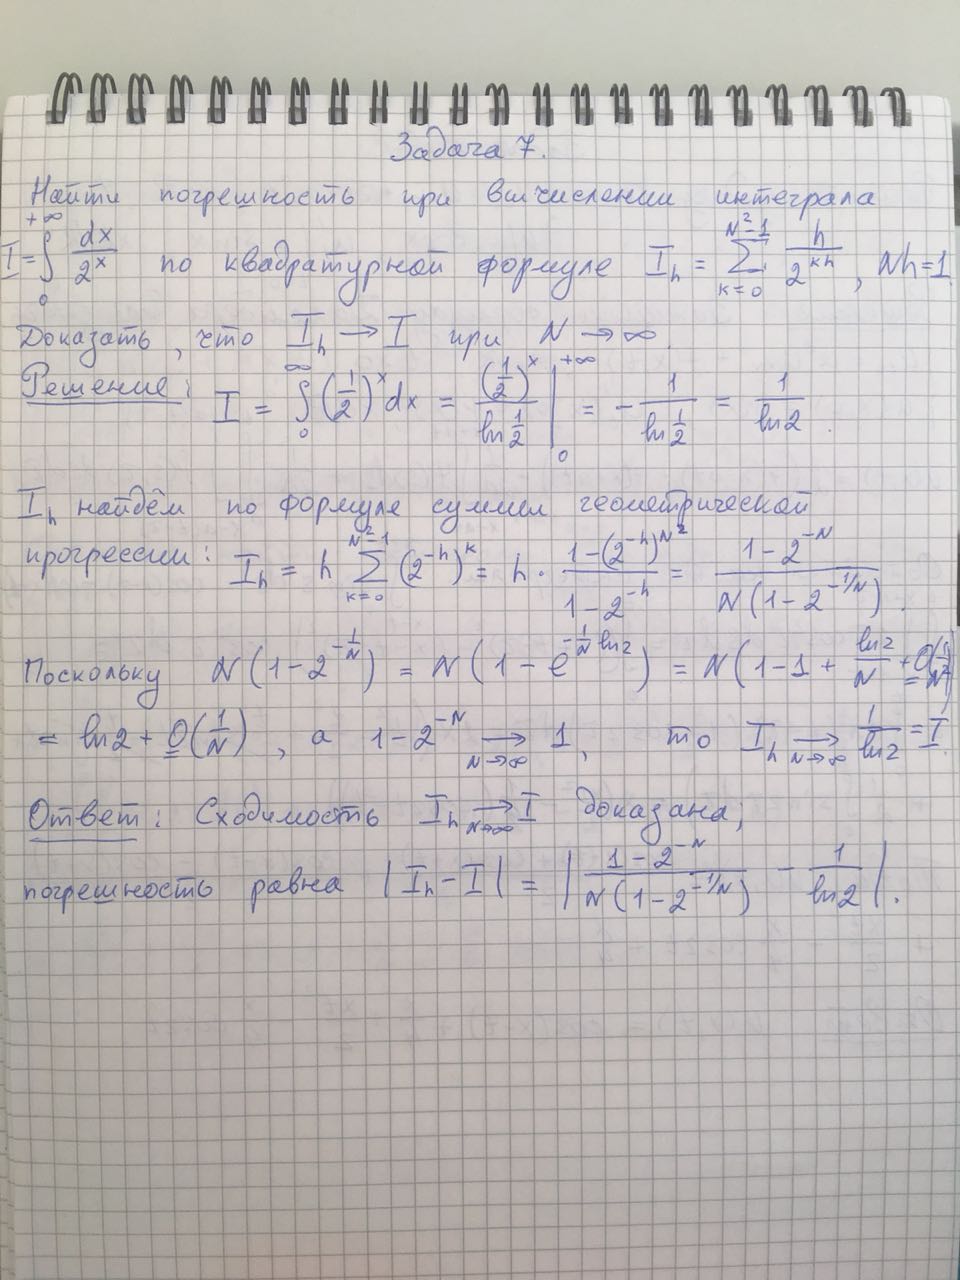 Задача 7.
Найти погрешность при вычислении интеграла
I = ∫₀^{+∞} dx/2^x по квадратурной формуле I_h = ∑_{k=0}^{N²-1} h/2^{kh}, Nh=1.
Доказать, что I_h → I при N → ∞.
Решение: I = ∫₀^∞ (1/2)^x dx = (1/2)^x / ln 1/2 |₀^{+∞} = - 1/(ln 1/2) = 1/ln2.
I_h найдём по формуле суммы геометрической
прогрессии: I_h = h ∑_{k=0}^{N²-1} (2^{-h})^k = h · (1-(2^{-h})^{N²})/(1-2^{-h}) = (1-2^{-N})/(N(1-2^{-1/N})).
Поскольку N(1-2^{-1/N}) = N(1-e^{-1/N ln2}) = N(1-1+ ln2/N + O(1/N²))
= ln2 + O(1/N), а 1-2^{-N} →_{N→∞} 1, то I_h →_{N→∞} 1/ln2 = I.
Ответ: Сходимость I_h →_{N→∞} I доказана,
погрешность равна |I_h - I| = |(1-2^{-N})/(N(1-2^{-1/N})) - 1/ln2|.